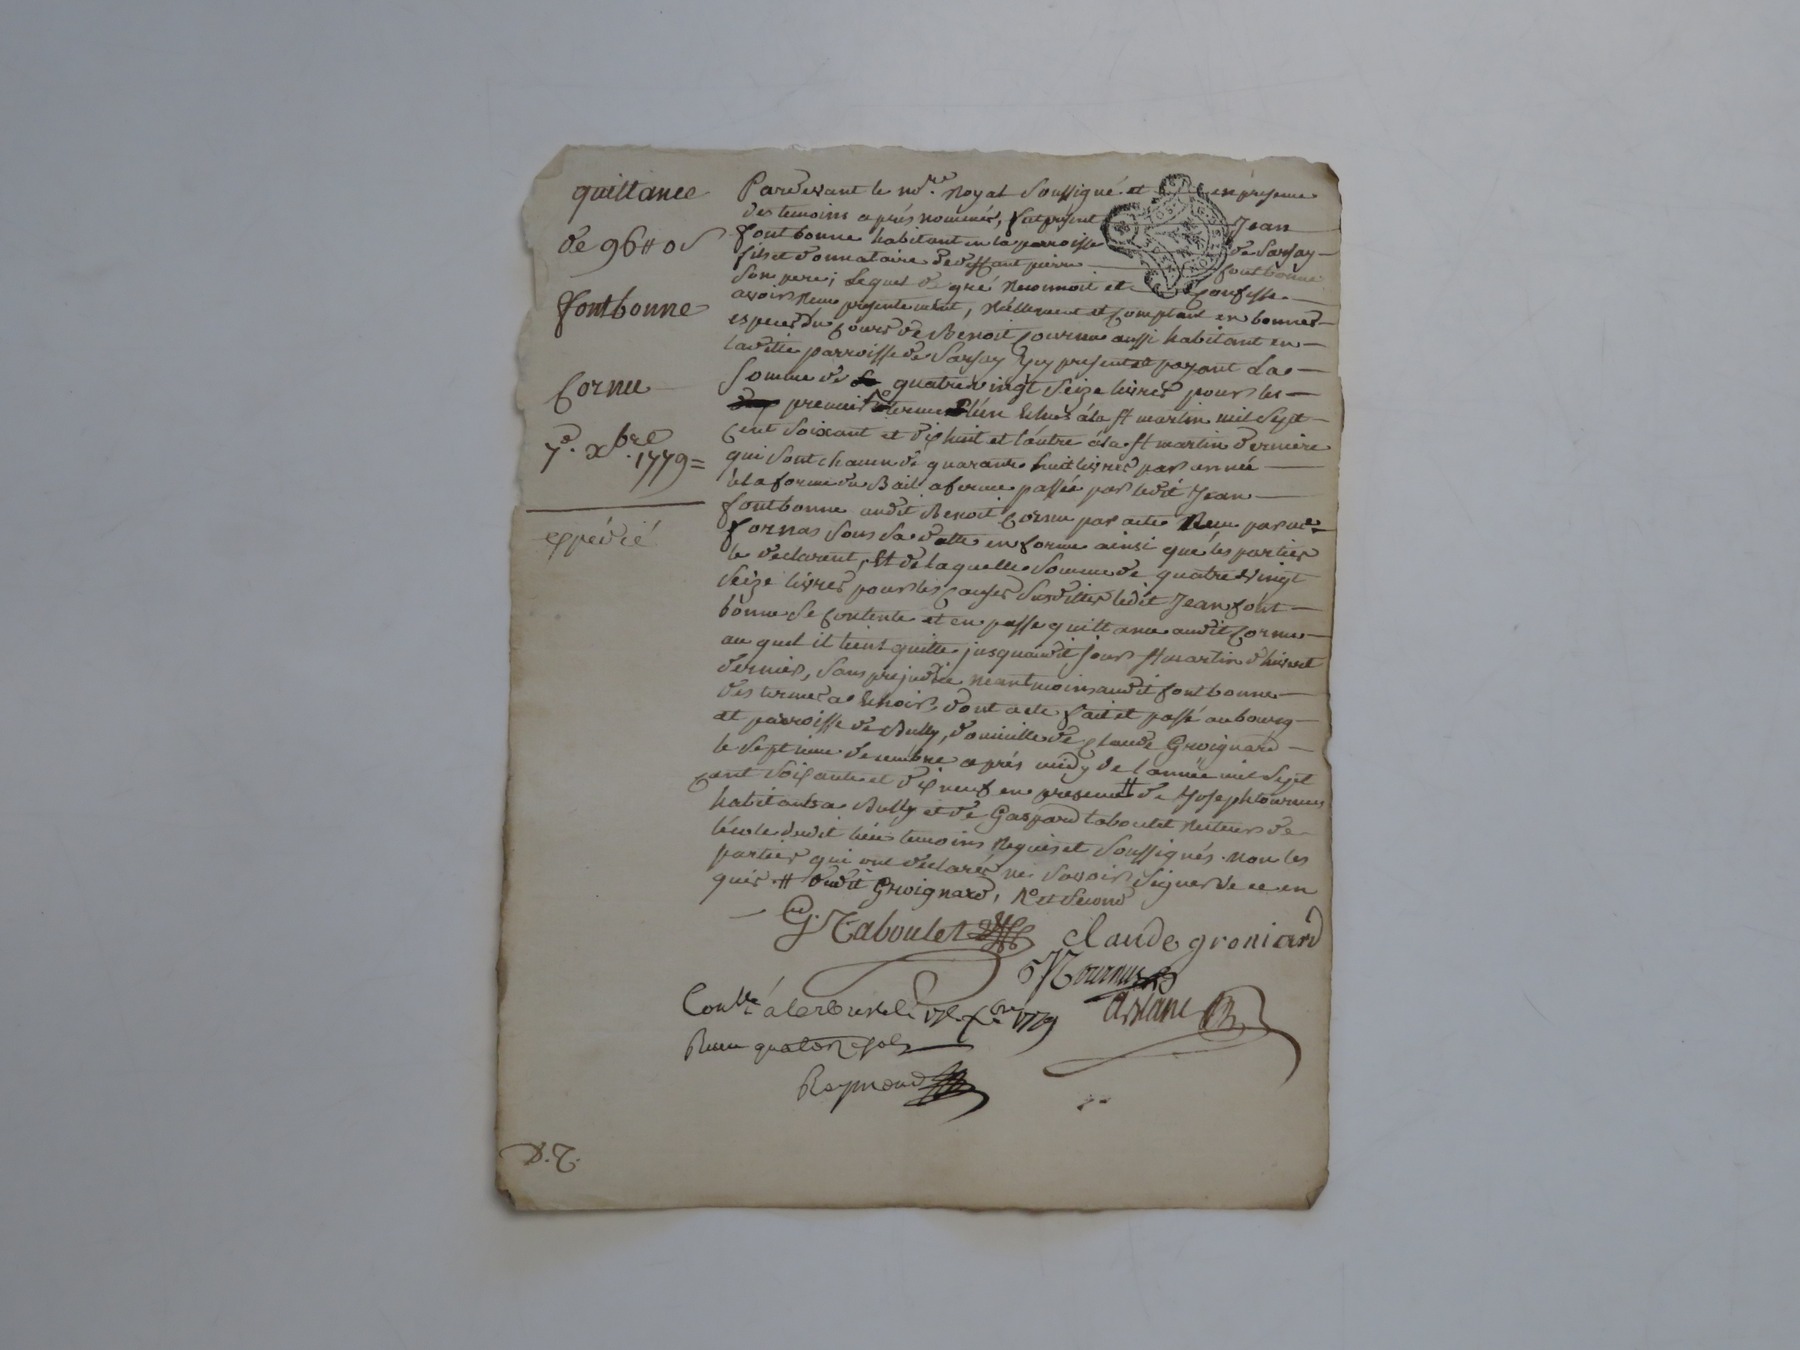 quittance
de 96# 0s
fontbonne
Cornu
7e. xbre. 1779=
expédié
Pardevant le nre. Royal Soussigné et en présence
des temoins aprés nommés, fut présent Jean
fontbonne habitant en la parroisse de Sarsay
fils et donnataire de deffunt pierre fontbonne
Son pere; Lequel de gré Reconnoit et Confesse
avoir Reçu presentement, Réellement et Comptant en bonnes
especes du Cours de Benoit Cornu aussi habitant en
laditte parroisse de Sarsay Icy present et payant La
Somme de quatre vingt Seize livres pour les
premiers termes l'un Echus a la St martin mil Sept
Cent Soixant et dixhuit et l'autre a la St martin derniere
qui Sont chacun de quarante huit livres par année
a la forme du Bail a ferme passée par ledit Jean
fontbonne audit Benoit Cornu par acte Reçu par me
fornas Sous Sa datte en forme ainsi que les parties
le declarent, Et de laquelle Somme de quatre Vingt
Seize livres pour les Causes Susdittes ledit Jean font
bonne Se Contente et en passe quittance audit Cornu
au quel il tient quitte jusquaudit jour St martin d'hivert
dernier, Sans prejudice neantmoins audit fontbonne
des termes a Echoir dont acte fait et passé au bourg
et parroisse de Bully, domicille de Claude Groignard
le Septieme decembre aprés midy de l'année mil Sept
Cent Soixante et dix neuf en presence # de Joseph tournus
habitant a Bully et de Gaspard taboulet Recteur de
l'école dudit lieu temoins Requis et Soussignés. non les
parties qui ont declarés ne Savoir Signer de ce en
quis # dudit Groignard, Re et Second
G. Taboulet
Claude groniard
Tournus
Contlé. á le 17e. xbre 1779
Reçu quatorze Sols
Raymond
D.T.